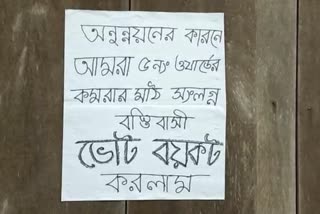 অনুন্নয়নের কারনে
আমরা ৫নং ওয়ার্ডের
কমরার মাঠ সংলগ্ন
বস্তি বাসী
ভোট বয়কট
করলাম